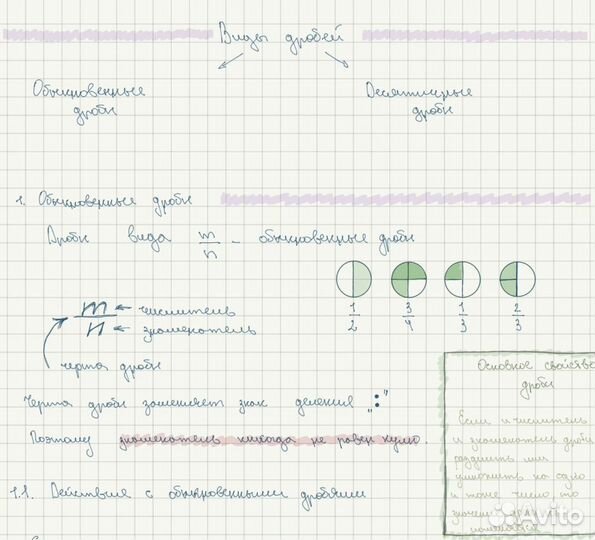 Виды дробей
Обыкновенные
дроби
Десятичные
дроби
1. Обыкновенные дроби
Дроби вида m/n - обыкновенные дроби
1/2 3/4 1/3 2/3
m ← числитель
n ← знаменатель
черта дроби
Черта дроби заменяет знак деления „:"
Поэтому знаменатель никогда не равен нулю.
Основное свойство
дроби
Если числитель
и знаменатель дроби
разделить или
умножить на одно
и тоже число, то
1.1. Действия с обыкновенными дробями
Avito